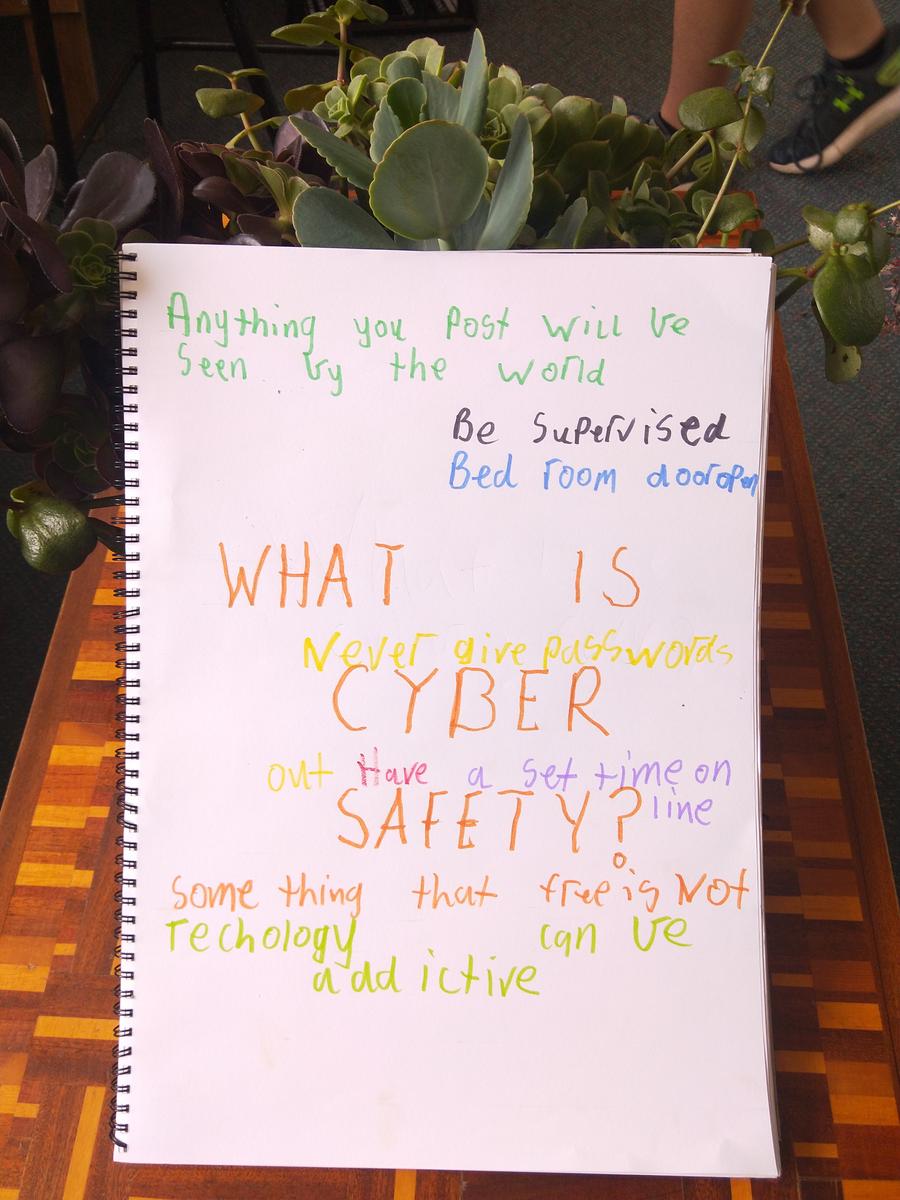 Anything you Post will be
Seen by the world
Be Supervised
Bed room door open
WHAT IS
Never give passwords
CYBER
out Have a set time on
line
SAFETY?
some thing that free is Not
Techology can be
addictive